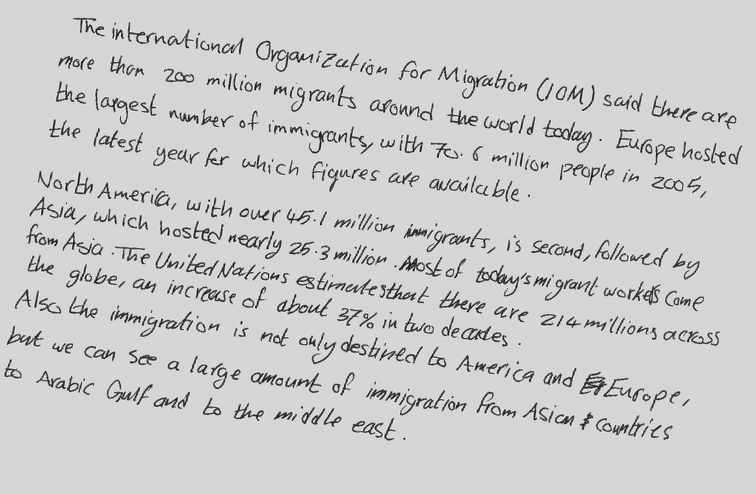 The international Organization for Migration (IOM) said there are
more than 200 million migrants around the world today. Europe hosted
the largest number of immigrants, with 70.6 million people in 2005,
the latest year for which figures are available.
North America, with over 45.1 million immigrants, is second, followed by
Asia, which hosted nearly 25.3 million. Most of today's migrant workers come
from Asia. The United Nations estimates that there are 214 millions across
the globe, an increase of about 37% in two decades.
Also the immigration is not only destined to America and Europe,
but we can see a large amount of immigration from Asian countries
to Arabic Gulf and to the middle east.